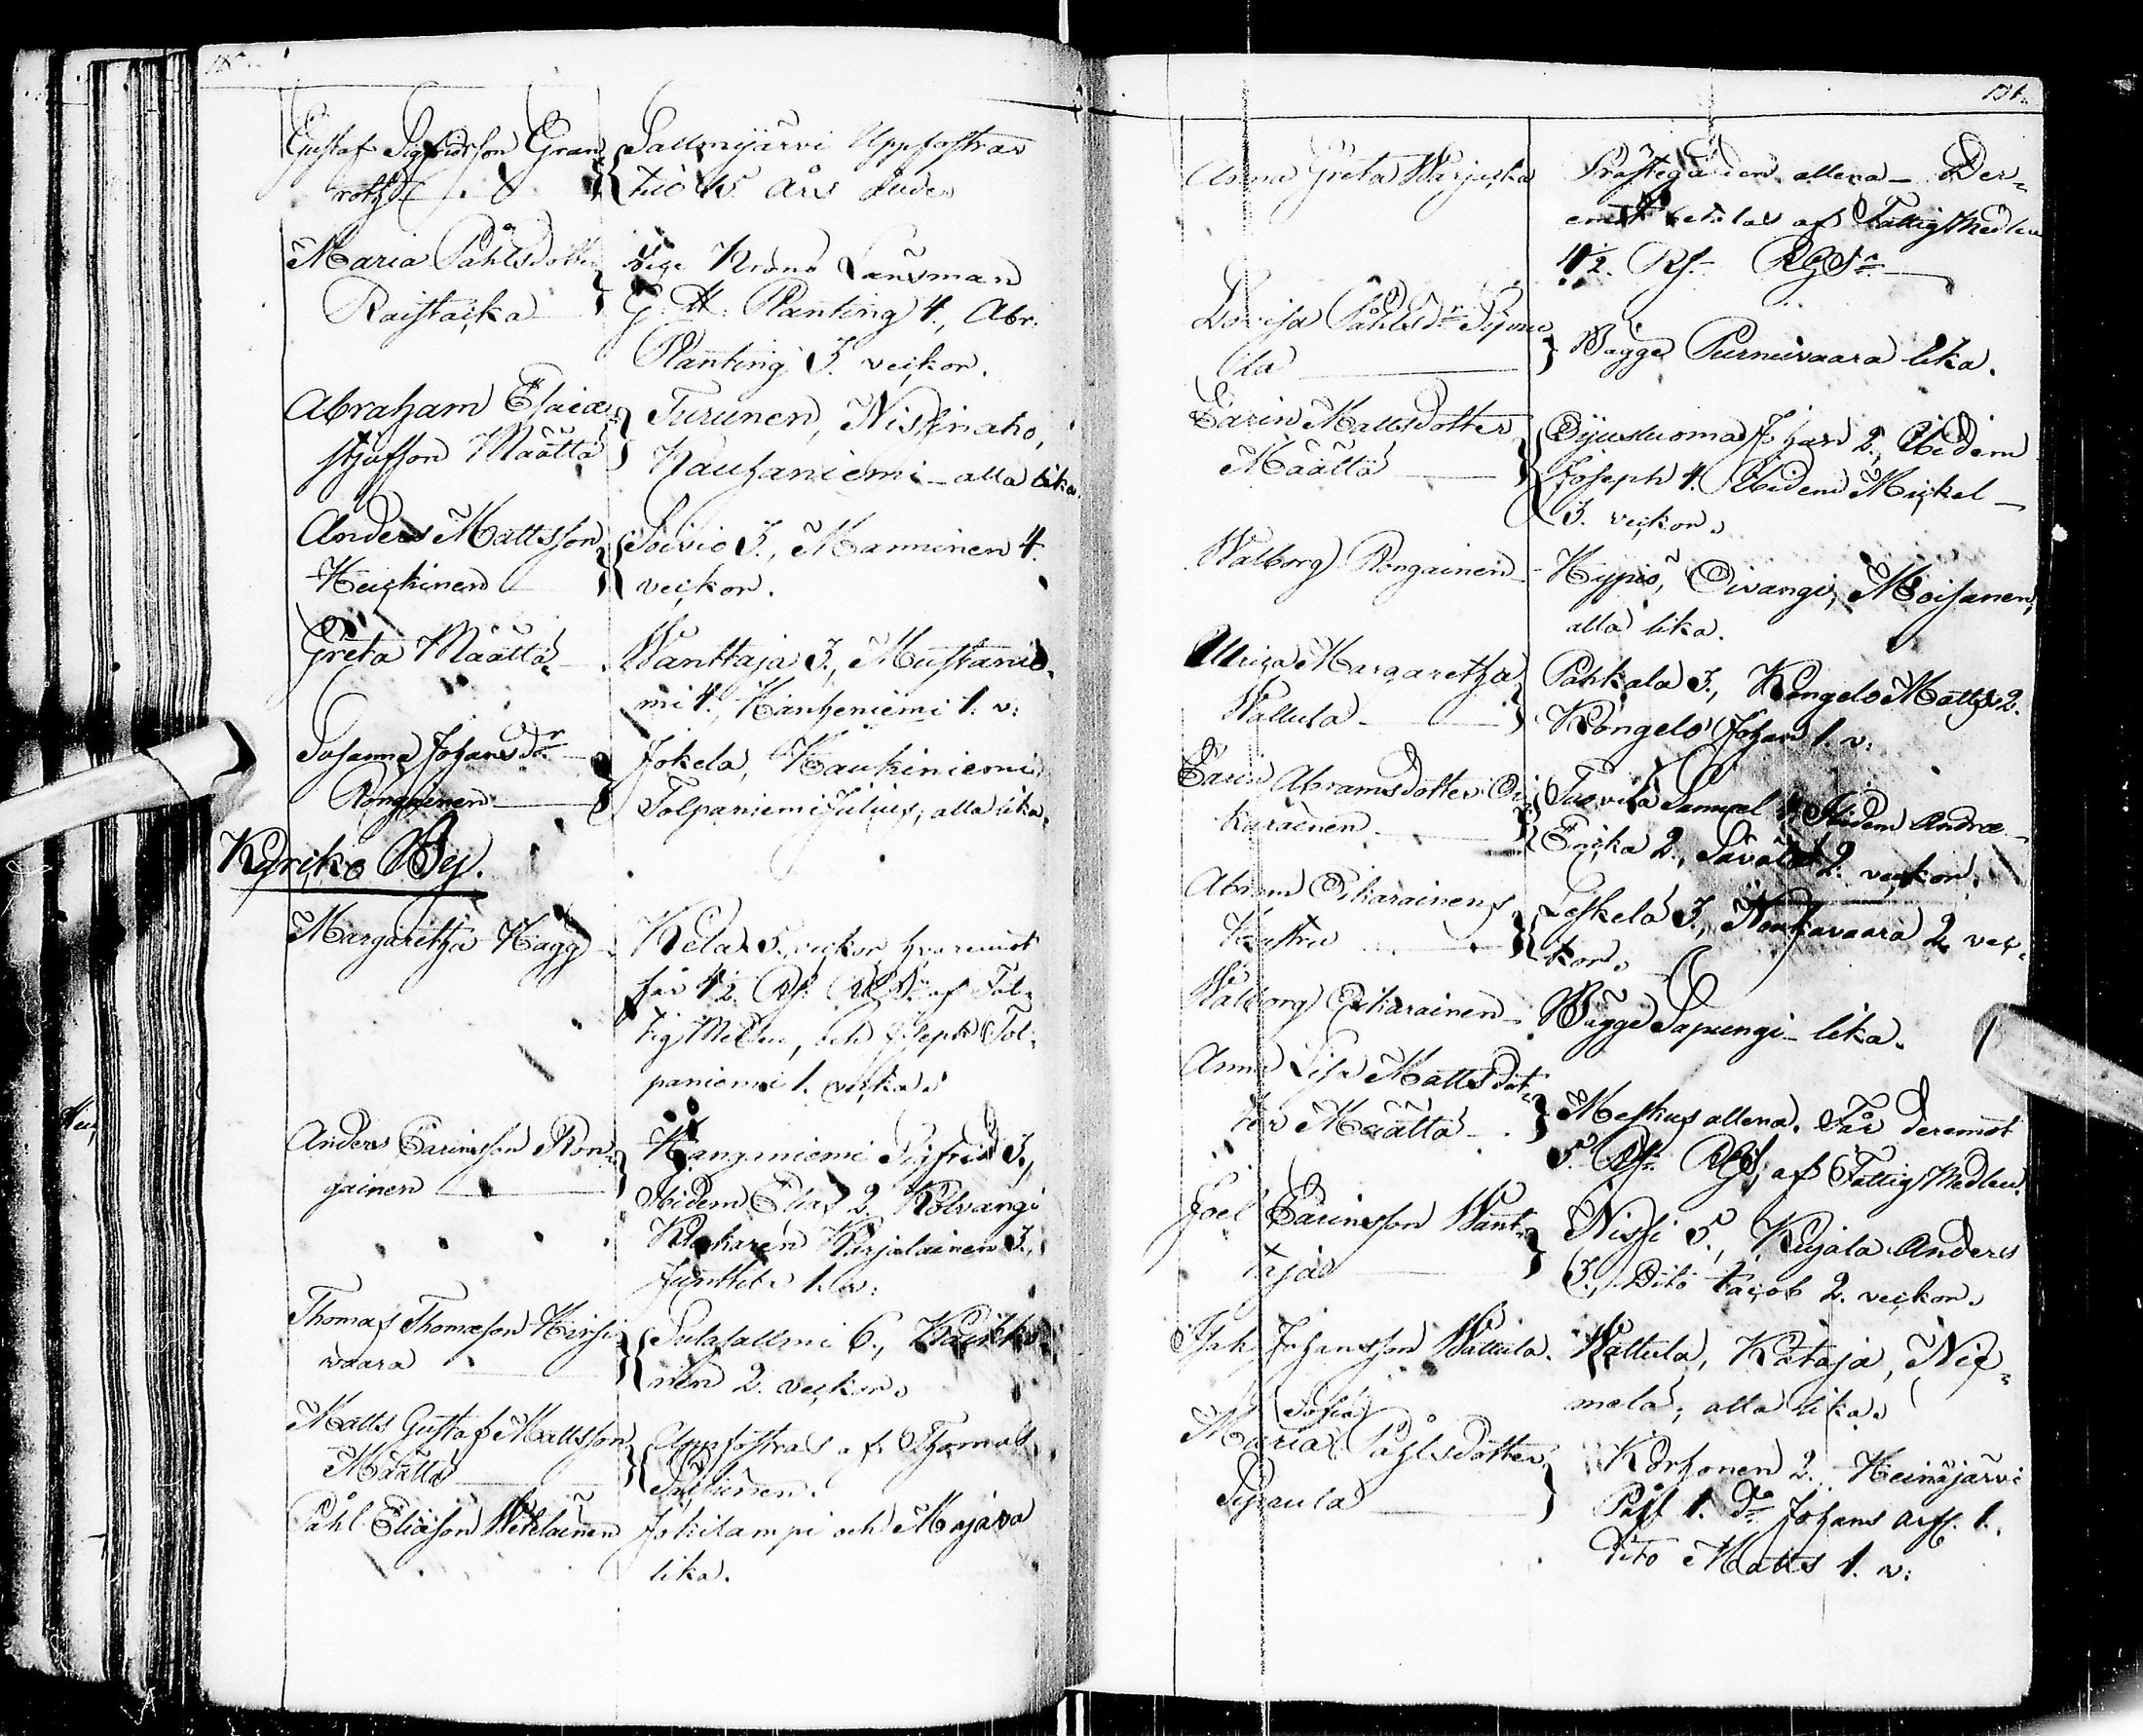 Gustaf Sigfridsson Gran
roth
Sallmijärvi Uppfostrar
till 15 Års ålder
Maria Påhlsdotter
Raistacka
Vice Krono Länsman
G. H. Planting 4., Abr.
Planting 3. veckor.
Abraham Esaiæ
styfson Määttä
Turunen, Niskinaho,
Kauhaniemi - alla lika.
Anders Mattsson
Heickinen
Soivio 3., Manninen 4.
veckor.
Greta Määttä
Wanttaja 3., Mustanie-
mi 4., Kanheniemi 1. v:
Susanna Johansdr
Rongainen
Jokela, Haukiniemi,
Tolpaniemi Julius, alla lika.
Kyrko By.
Margaretha Hägg
Kela 5. veckor, hvaremot
får 4 1/2 Rf. af Fat-
tig Medlen, och Tol-
paniemi 1. vecka.
Anders Carinsson Ron-
gainen
Kanganiemi Sigfrid 3.,
Ibidem Elias 2. Kolvangi
Karjalainen 3.,
1. v:
Thomas Thomæson Hirsi-
waara
Sulasallmi 6.,
nen 2. veckor.
Matts Gustaf Mattsson
Määttä
Uppfostras af Thomas
Påhl Eliæson Wehlainen
Jokilampi och Majava
lika.
131.
Anna Greta Warjuska
Prästegården allena - Der-
emot betalas af Fattig Medlen
4 1/2. Rf. RGS.
Lovisa Påhlsdr
la
Bägge Purnuvaara lika.
Carin Mattsdotter
Määttä
Oijusluoma Johan 2., Ibidem
Joseph 4. Ibidem Mickel
3. veckor.
Walborg Rongainen
Hypiö, Oivangi, Moisanen,
alla lika.
Ulrica Margaretha
Wattula
Pahkala 3., Kongelo Matts 2.
Kongelo Johan 1. v:
Carin Abramsdotter Oi-
karainen
Tuovila Samuel 1, Ibidem Andræ
Enka 2., Sävälä 2. veckor.
Abram Oikarainens
Hustru
Leskelä 3., 2. vec-
kor.
Walborg Oikarainen
Bägge Sapungi - lika.
Anna Lisa Mattsdot-
ter Määttä
Meskus allena. Får deremot
5. Rf. RGS, af Fattig Medlen.
Joel Carinsson Want-
taja
Nissi 5., Kujala Anders
3., Dito Jacob 2. veckor.
Isak Johansson Wattula.
Wattula, Kataja, Nie-
melä, alla lika.
Sofia
Maria Påhlsdotter
Korhonen 2., Heinäjärvi
Påhl 1. Do Johans 1.
Dito Matts 1. v: